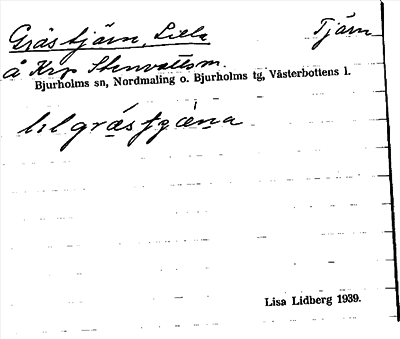 Gräs tjärn, Lilla Tjärn
å Krp Stenvattsm.
Bjurholms sn, Nordmaling o. Bjurholms tg, Västerbottens l.
lilgrästjæna
Lisa Lidberg 1939.